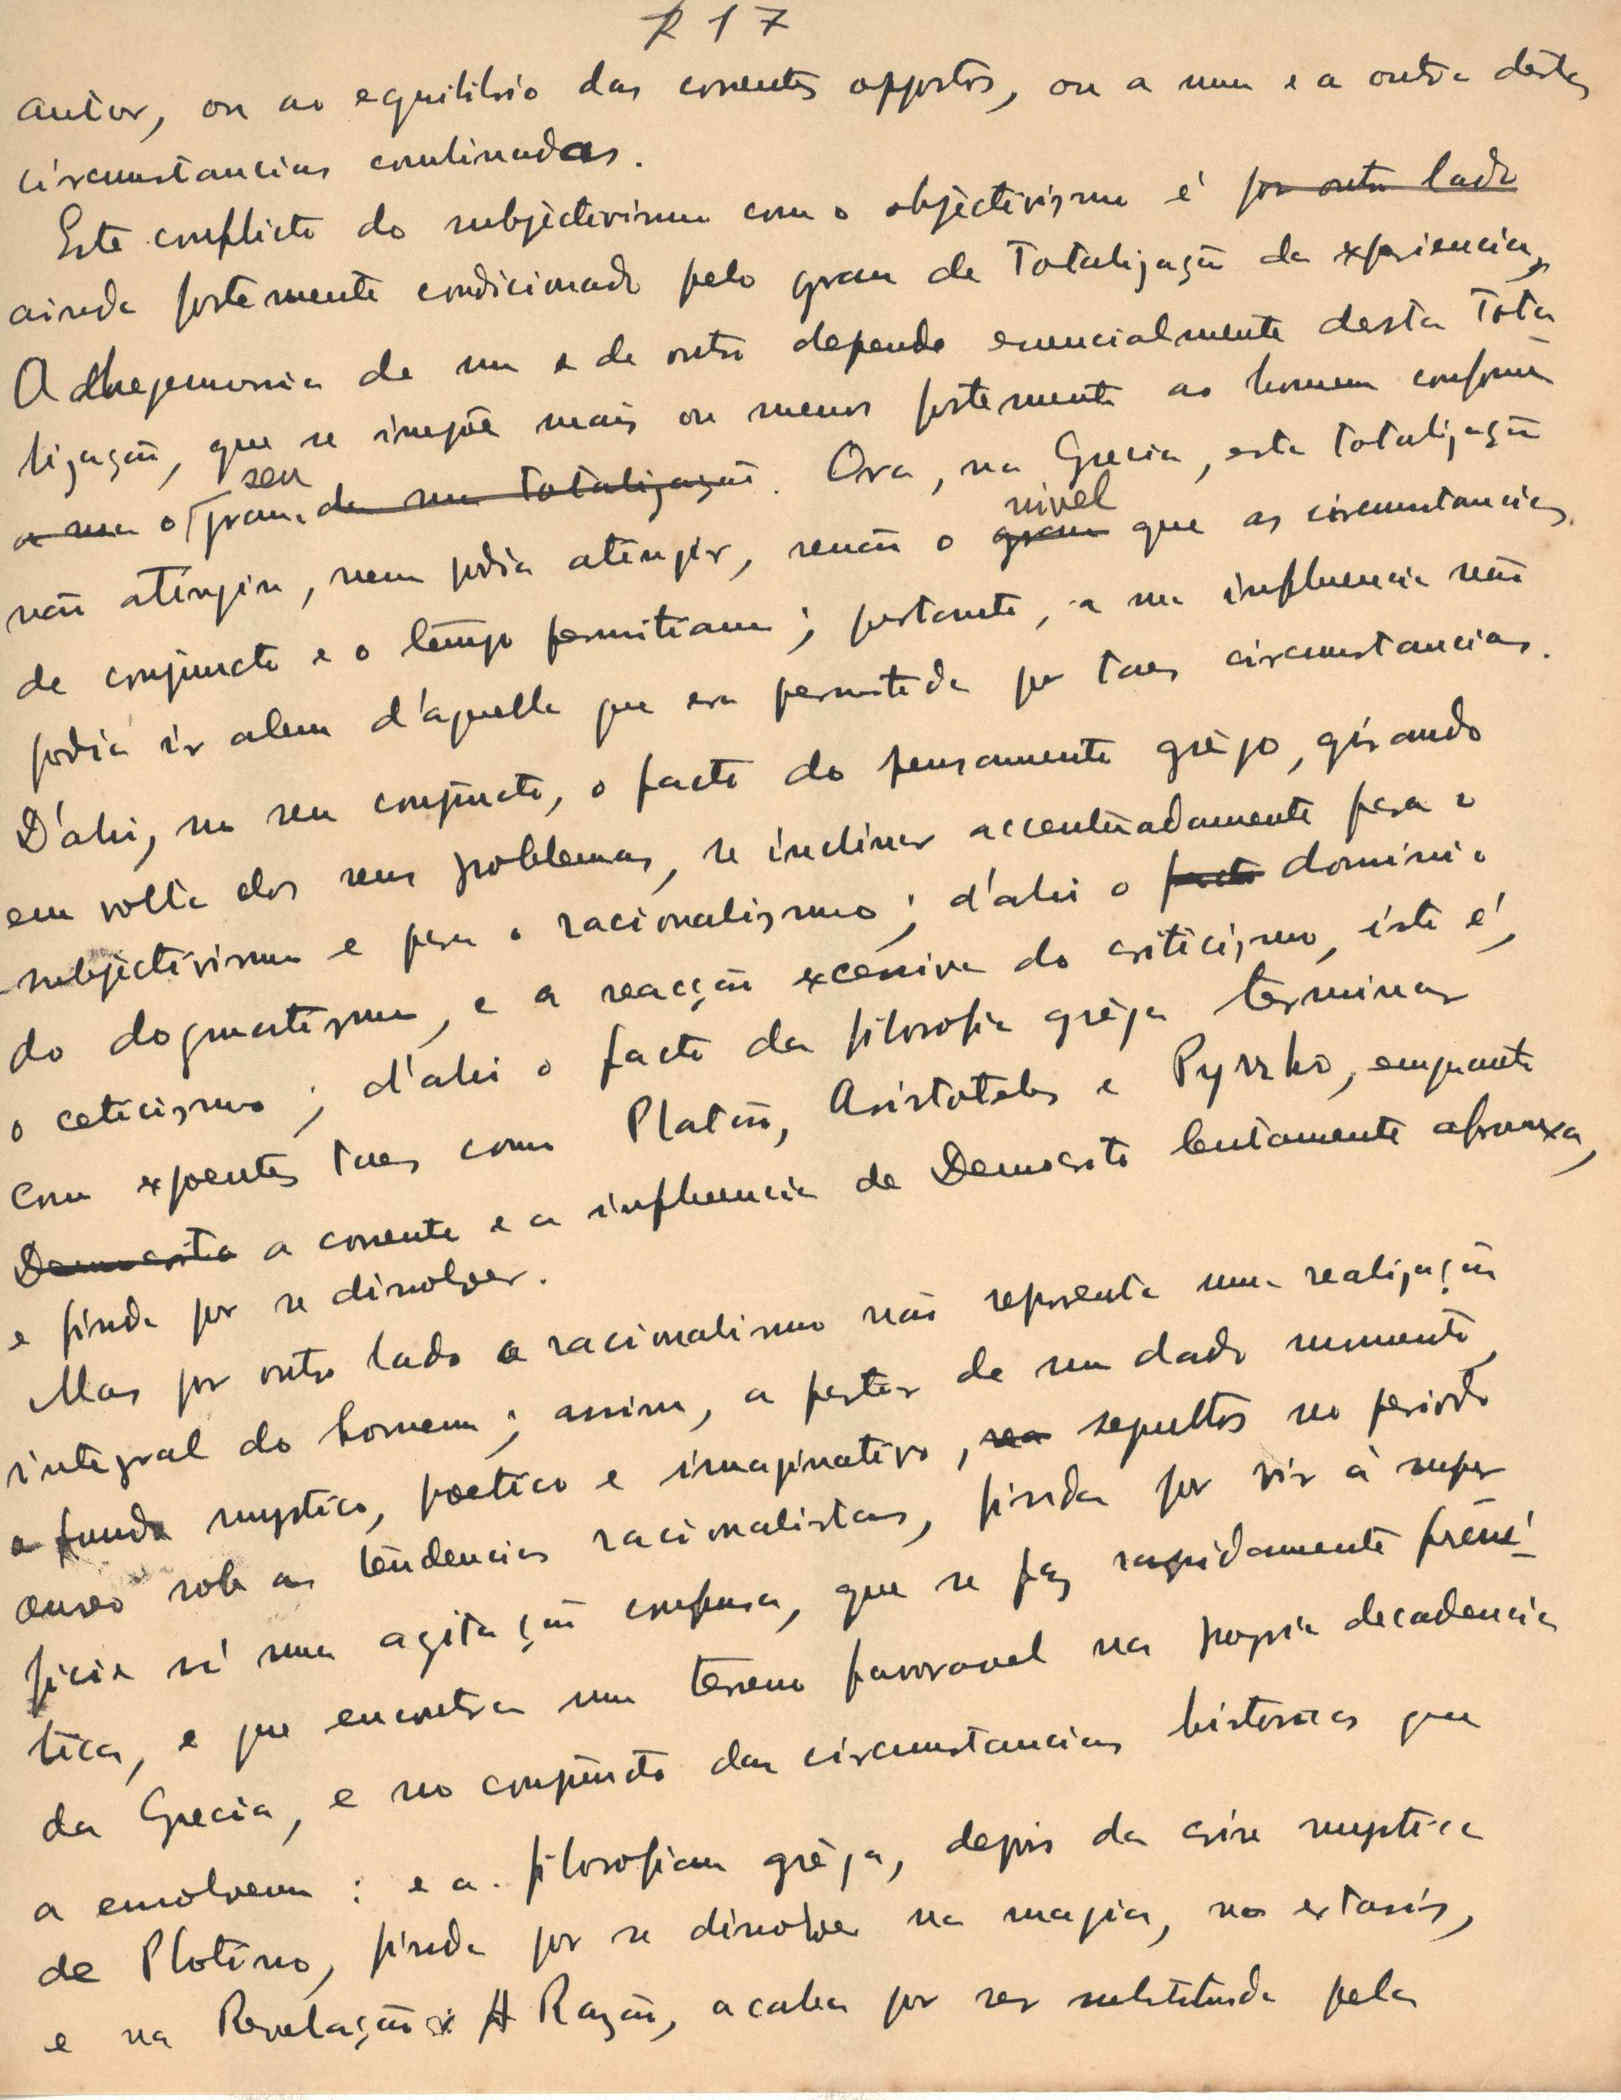 R 17
autor, ou ao equilibrio das correntes oppostas, ou a uma e a outra destas
circumstancias combinadas.
Este conflicto do subjectivismo com o objectivismo é por outro lado
ainda fortemente condicionado pelo grau de totalização da experiencia,
A hegemonia de um e de outro depende essencialmente desta tota
lização, que se impõe mais ou menos fortemente ao homem conforme
a sua o seu grau. de sua totalização. Ora, na Grecia, esta totalização
não atingiu, nem podia atingir, senão o grau nivel que as circumstancias
de conjuncto e o tempo permitiam; portanto, a sua influencia não
podia ir alem d'aquella que era permitida por taes circumstancias.
D'ahi, no seu conjuncto, o facto do pensamento grègo, girando
em volta dos seus problemas, se inclinar accentuadamente para o
subjectivismo e para o racionalismo; d'ahi o facto dominio
do dogmatismo, e a reacção excessiva do criticismo, isto é,
o ceticismo; d'ahi o facto da filosofia grèga terminar
com expoentes taes como Platão, Aristoteles e Pyrrho, emquanto
Democrito a corrente e a influencia de Democrito lentamente afrouxa,
e finda por se dissolver.
Mas por outro lado o racionalismo não representa uma realização
integral do homem; assim, a partir de um dado momento,
o fundo mystico, poetico e imaginativo, sepultos no periodo
aureo sob as tendencias racionalistas, finda por vir à super
ficie n'uma agitação confusa, que se faz rapidamente frené-
tica, e que encontra um terreno favoravel na propria decadencia
da Grecia, e no conjuncto das circumstancias historicas que
a envolvem: e a filosofia grèga, depois da crise mystica
de Plotino, finda por se dissolver na magia, no extasis,
e na Revelação: A Razão, acaba por ser substituida pela